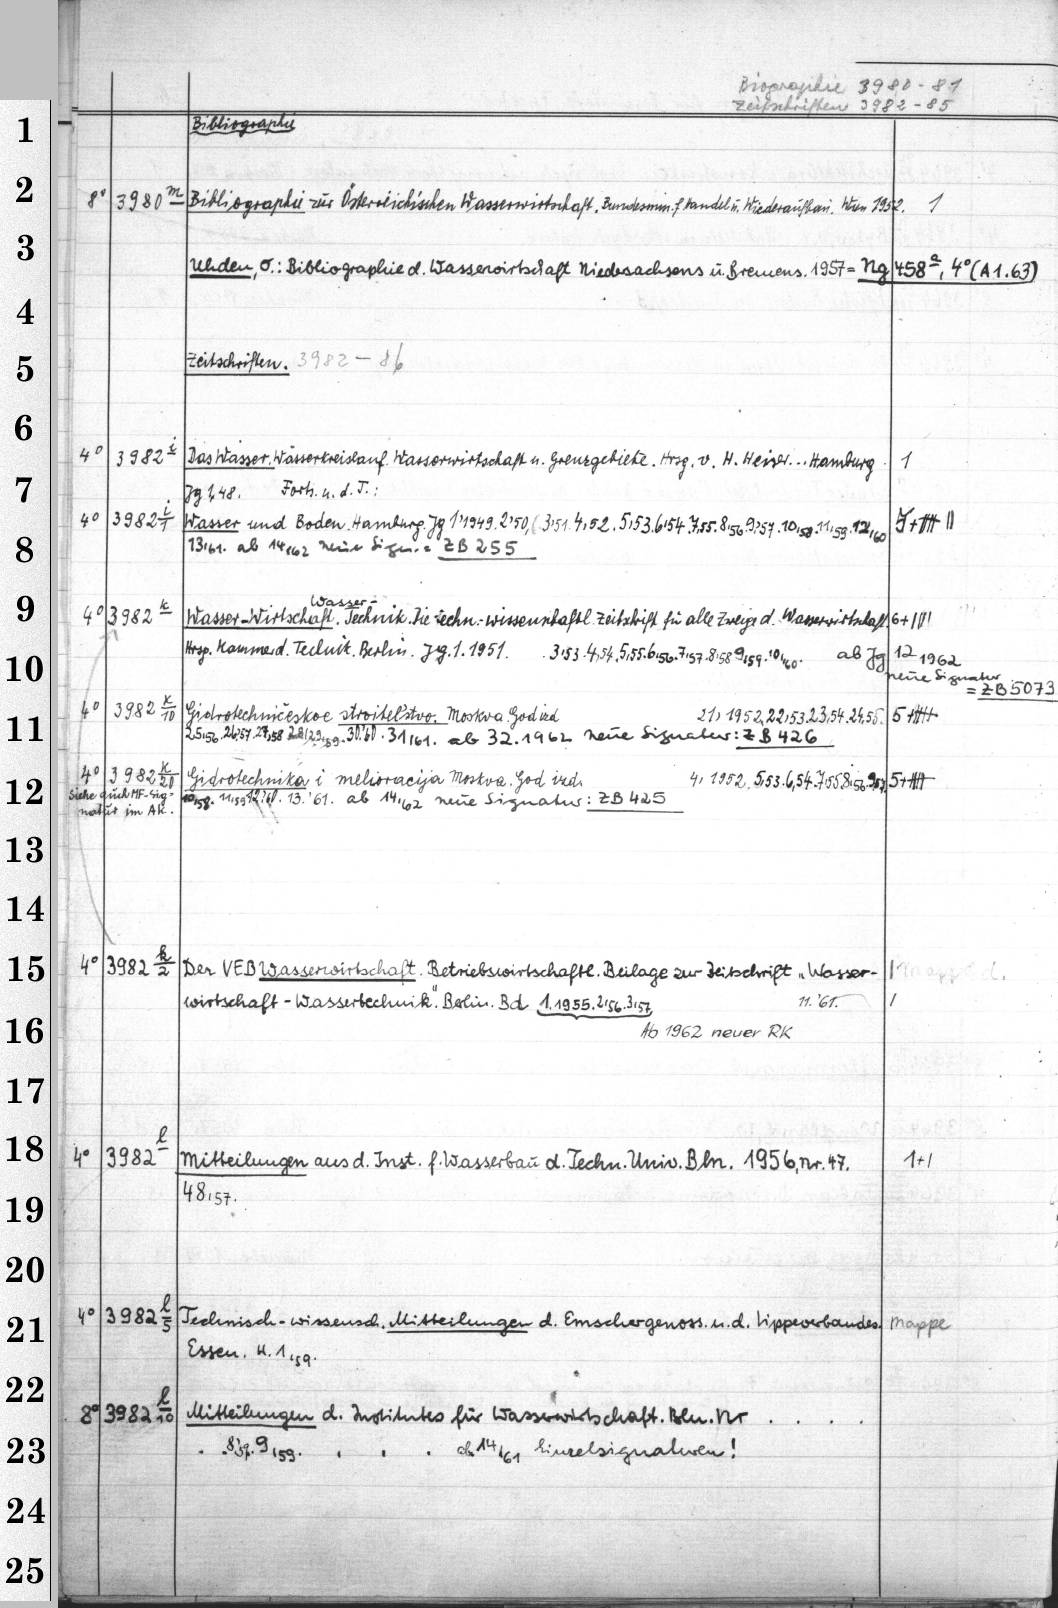 Biographie 3980-81
Zeitschriften 3982-85
1
Bibliographie
2
8° 3980 m Bibliographie zur Österreichischen Wasserwirtschaft. Bundesmin. f. Handel u. Wiederaufbau. Wien 1952. 1
3
Uhden, O.: Bibliographie d. Wasserwirtschaft Niedersachsens u. Bremens. 1957 = Ng 458 a, 4° (A1.63)
4
5
Zeitschriften. 3982-86
6
4° 3982 i Das Wasser. Wasserkreislauf. Wasserwirtschaft u. Grenzgebiete. Hrsg. v. H. Heiser... Hamburg 1
7
Jg 1,48. Forts. u. d. T.:
4° 3982 i/1 Wasser und Boden. Hamburg. Jg 1'1949. 2'50, 3'51. 4,52. 5,53. 6,54. 7,55. 8,56. 9,57. 10,58. 11,59. 12,60
8
13,61. ab 14,62 neue Sign. = ZB 255
9
Wasser-
4° 3982 k Wasser-Wirtschaft. Technik. Die techn.-wissenschaftl. Zeitschrift für alle Zweige d. Wasserwirtschaft. 6+
10
Hrsg. Kammer d. Technik. Berlin. Jg. 1. 1951. 3,53. 4,54. 5,55. 6,56. 7,57. 8,58 9,59. 10,60. ab Jg 12 1962
neue Signatur
= ZB 5073
4° 3982 k/10 Gidrotechničeskoe stroitel'stvo. Moskva. God izd 21, 1952, 22,53. 23,54. 24,55. 5+
11
25,56. 26,57. 27,58 28/29,59. 30,'60. 31,61. ab 32. 1962 neue Signatur: ZB 426
4° 3982 k/20 Gidrotechnika i melioracija Moskva. God izd. 4, 1952. 5,53. 6,54. 7,55 8,56. 9,57 5+
12
siehe auch MF-Sig-
natur im AK.
10,58. 11,59 12,'60. 13.'61. ab 14,62 neue Signatur: ZB 425
13
14
15
4° 3982 k/2 Der VEB Wasserwirtschaft. Betriebswirtschaftl. Beilage zur Zeitschrift „Wasser-
wirtschaft - Wassertechnik". Berlin. Bd 1. 1955. 2,56. 3,57 11.'61.
16
Ab 1962 neuer RK
17
18
4° 3982 l Mitteilungen aus d. Inst. f. Wasserbau d. Techn. Univ. Bln. 1956, Nr. 47. 1+1
19
48,57.
20
21
4° 3982 l/5 Technisch-wissensch. Mitteilungen d. Emschergenoss. u. d. Lippeverbandes. Mappe
Essen. H. 1,59.
22
8° 3982 l/10 Mitteilungen d. Institutes für Wasserwirtschaft. Bln. Nr . . . .
23
. 8,59. 9,59. . . . ab 14,61 Einzelsignaturen!
24
25